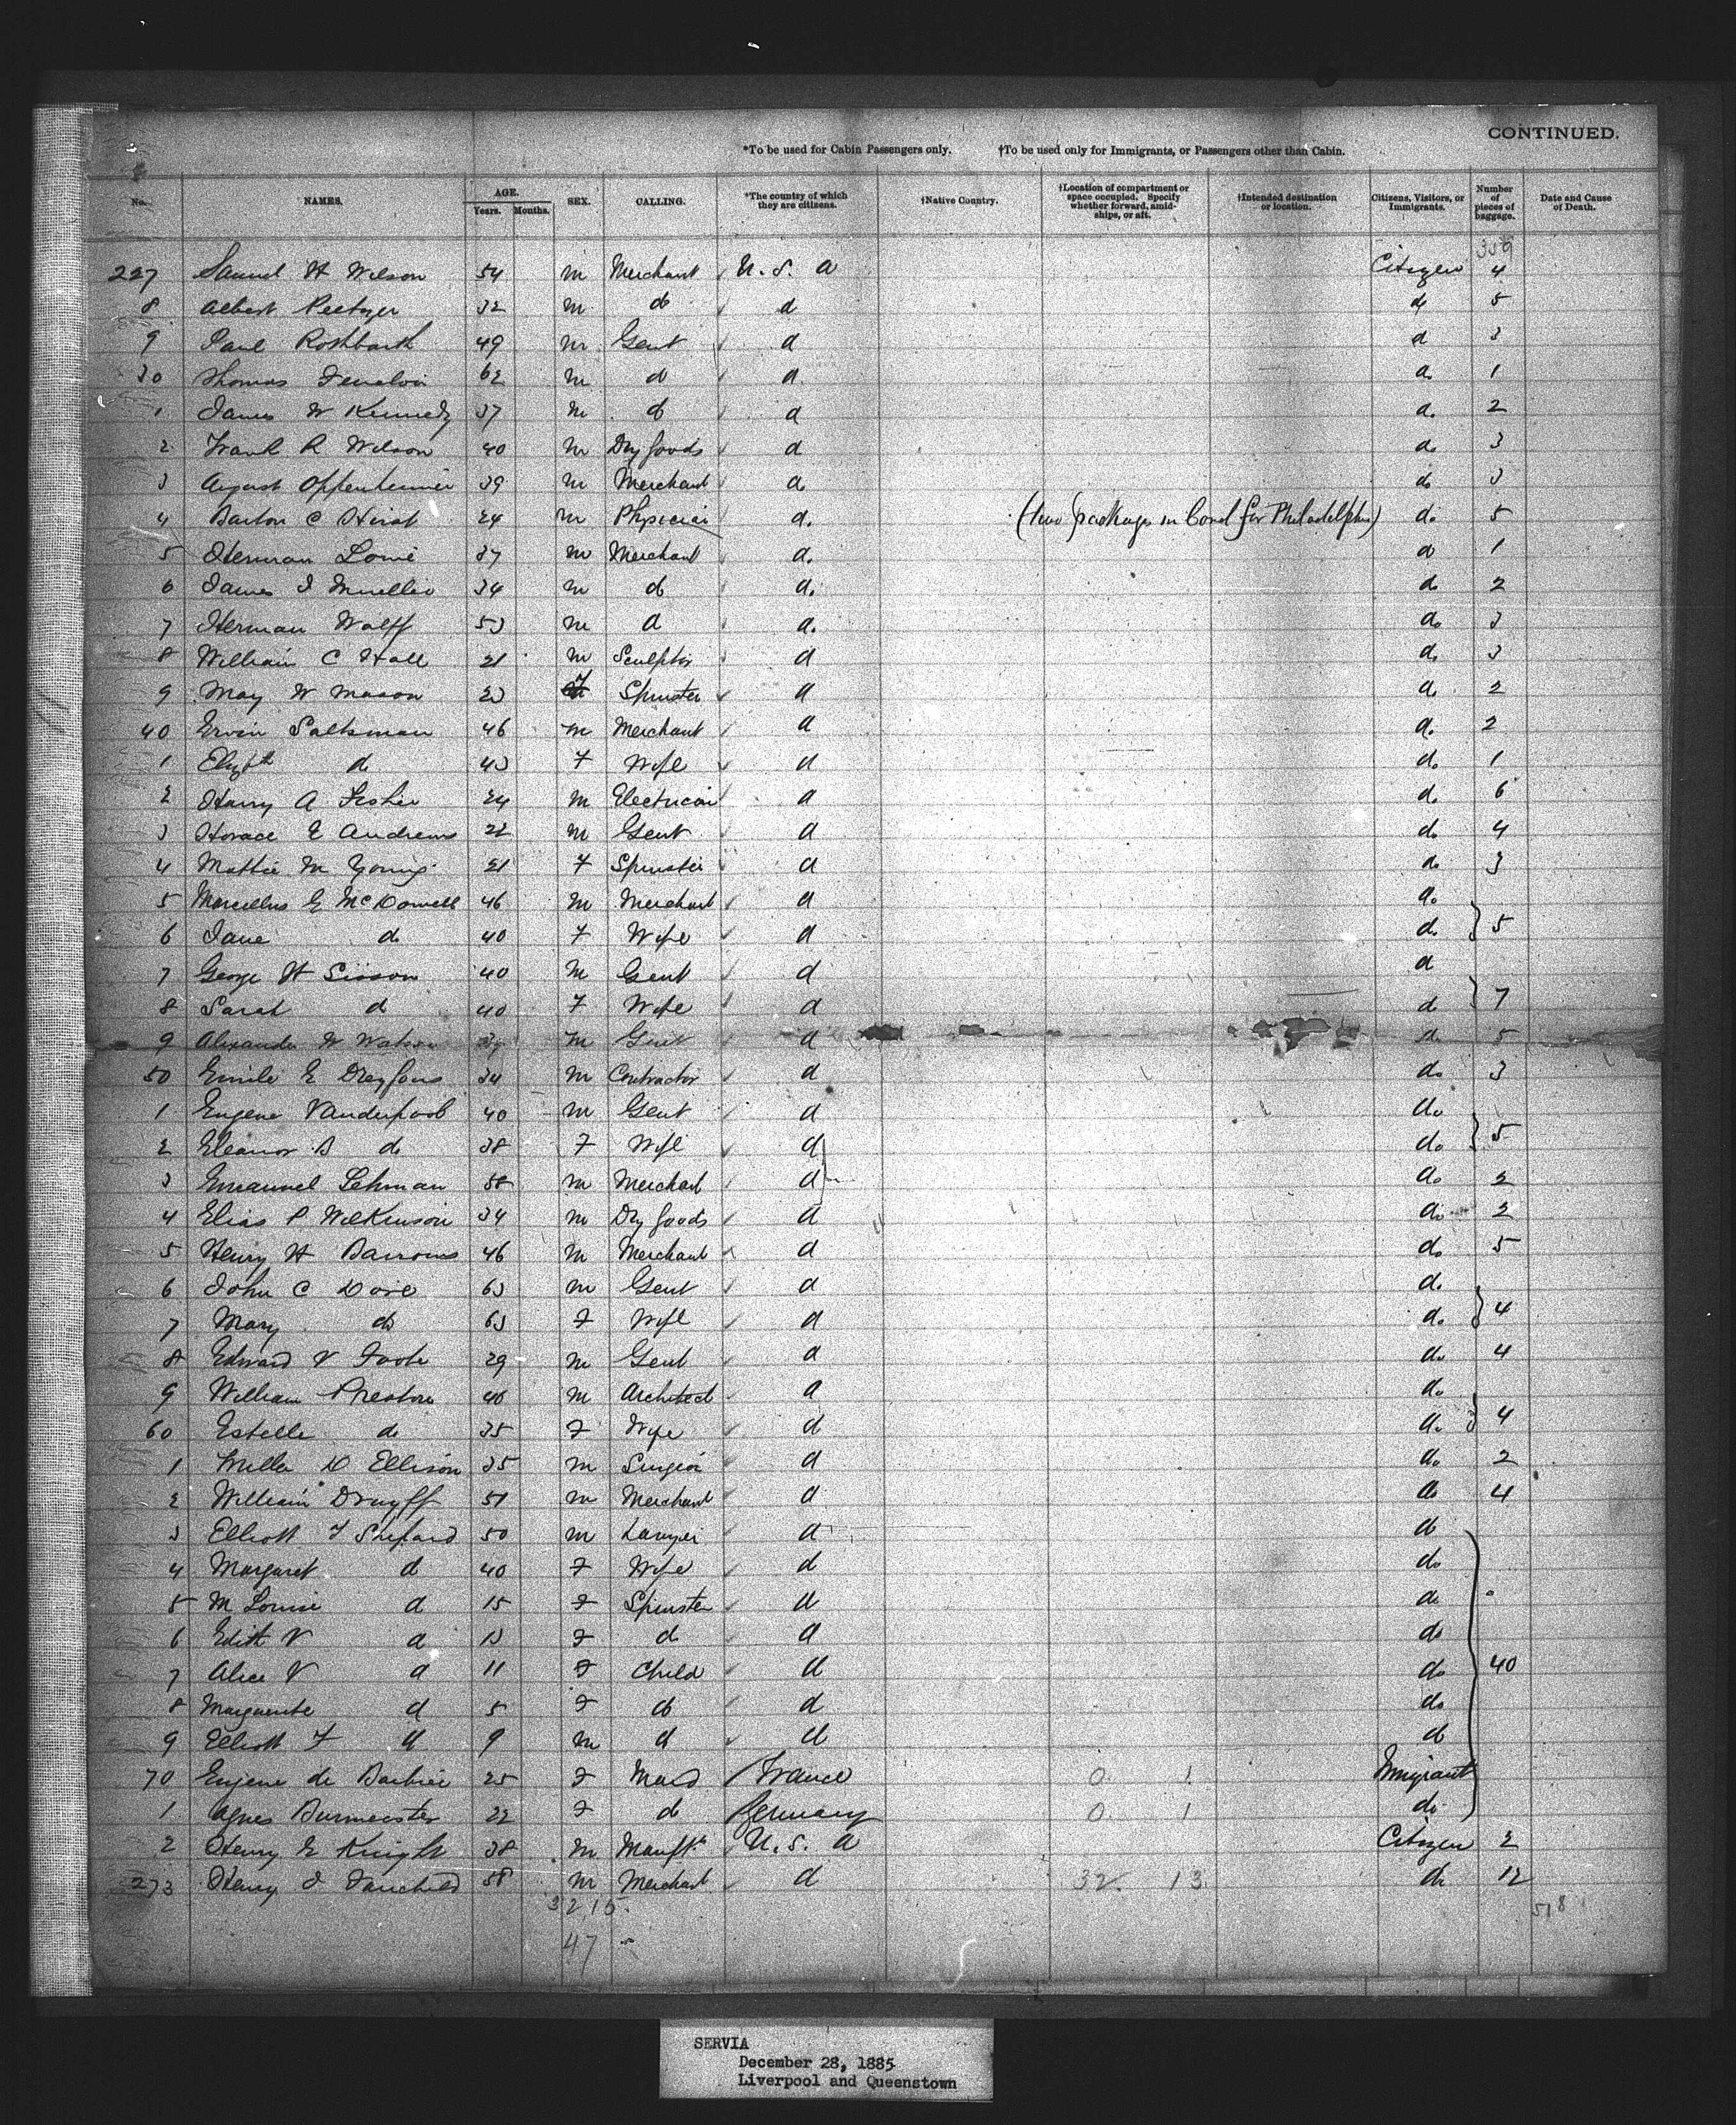 CONTINUED.
*To be used for Cabin Passengers only. †To be used only for Immigrants, or Passengers other than Cabin.
No. NAMES. AGE. Years. Months. SEX. CALLING. *The country of which they are citizens. †Native Country. †Location of compartment or space occupied. Specify whether forward, amidships, or aft. †Intended destination or location. Citizens, Visitors, or Immigrants. Number of pieces of baggage. Date and Cause of Death.
359
227 Samuel H Wilson 54 m Merchant U.S.A Citizen 4
8 Albert 32 m do d do 5
9 Paul Rothbarth 49 m Gent d d 3
30 Thomas 62 m d d d. 1
1 James W Kennedy 37 m do d d. 2
2 Frank R Wilson 40 m Dry Goods d d. 3
3 August Oppenheimer 39 m Merchant d. do 3
4 Barton C Hirst 24 m Physician d. (two packages in bond for Philadelphia) do 5
5 Herman 37 m Merchant d. d 1
6 James I 34 m do d. do 2
7 Herman Wolff 53 m d d. do 3
8 William C Hall 21 m Sculptor d do 3
9 May W Mason 23 F Spinster d do 2
40 Ervin Saltsman 46 m Merchant d d. 2
1 Elizth do 43 F Wife d do 1
2 Harry A 24 m Electrician d do 6
3 Horace E Andrews 22 m Gent d do 4
4 Mattie M Young 21 F Spinster d do 3
5 Marcellus G McDowell 46 m Merchant d do
6 Jane do 40 F Wife d do 5
7 George H Sisson 40 m Gent d d
8 Sarah d 40 F Wife d do 7
9 Alexander W Watson m Gent d do 5
50 Emile E Dreyfous 34 m Contractor d do 3
1 Eugene Vanderpool 40 m Gent d do
2 Eleanor B do 38 F Wife d do 5
3 Emanuel Lehman 58 m Merchant d do 2
4 Elias P Wilkinson 34 m Dry Goods d do 2
5 Henry H Barrows 46 m Merchant d do 5
6 John C Dore 63 m Gent d do
7 Mary do 63 F Wife d do 4
8 Edward V 29 m Gent d do 4
9 William Preston 46 m Architect d do
60 Estelle do 35 F Wife d do 4
1 D Ellison 35 m Surgeon d do 2
2 William 51 m Merchant d do 4
3 Elliott F Shepard 50 m Lawyer d do
4 Margaret d 40 F Wife d do
5 M Louise d 15 F Spinster d do
6 Edith V d 13 F d d do
7 Alice V d 11 F Child d do 40
8 Marguerite d 5 F do d do
9 Elliott F d 9 m d d d
70 Eugene de Barbier 25 F Maid France 0 1 Immigrant
1 Agnes Burmeister 22 F d Germany 0 1 do
2 Henry E Knight 38 m Manftr U.S.A Citizen 2
273 Henry I Fairchild 58 m Merchant d 32 13 do 12
32 15 518
47
SERVIA
December 28, 1885
Liverpool and Queenstown